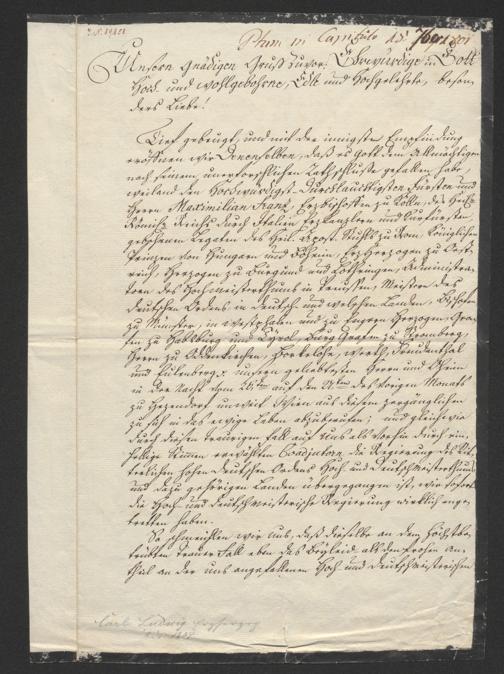 Psum in Capitulo 15 7bris 1801
Unsern Gnädigen Gruß zuvor. Ehrwürdige in Gott
Hoch und Wohlgebohrne, Edle und Hochgelehrte, beson
ders Liebe!
Tief gebeugt, und mit der innigsten Empfindung
eröffnen wir Denenselben, daß es Gott dem Allmächtigen
nach seinem unerforschlichen Rathschluße gefallen habe,
weiland den Hochwürdigst-Durchlauchtigsten Fürsten und
Herrn Maximilian Franz, Erzbischoffen zu Kölln, des Heil.
Römisch. Reichs durch Italien Erzkanzlern und Kurfürsten,
gebohrnen Legaten des Heil. Apost. Stuhls zu Rom, Königlichen
Prinzen von Hungarn und Böheim, Erzherzogen zu Oest-
reich, Herzogen zu Burgund und Lothringen, Administra-
torn des Hochmeisterthums in Preussen, Meistern des
deutschen Ordens in deutsch- und welschen Landen, Bischofen
zu Münster, in Westphalen und zu Engern Herzogen, Gra-
fen zu Habsburg und Tyrol, Burg Grafen zu Stromberg,
Herrn zu Odenkirchen, Borkelohe, Werth, Freudenthal
und Eulenberg, unsern geliebtesten Herrn und Oheim
in der Nacht vom 26ten auf den 27ten des vorigen Monats
zu Hezendorf unweit Wien aus diesem zergänglichen
zu sich in das ewige Leben abzuberufen; und gleichwie
durch diesen traurigen Fall auf Uns als vorhin durch ein-
hellige Stimmen erwählten Coadjutorn die Regierung des Rit-
terlichen hohen deutschen Ordens Hoch und Deutschmeisterthums
und dazu gehörigen Landen übergegangen ist, wir sofort
die Hoch und Deutschmeisterische Regierung wirklich ange-
tretten haben.
So schmeichlen wir uns, daß dieselbe an dem höchstbe-
trübten Trauer Fall eben das Beyleid als den frohen An-
theil an der uns angefallenen Hoch und Deutschmeisterischen
Carl Ludwig Erzherzog